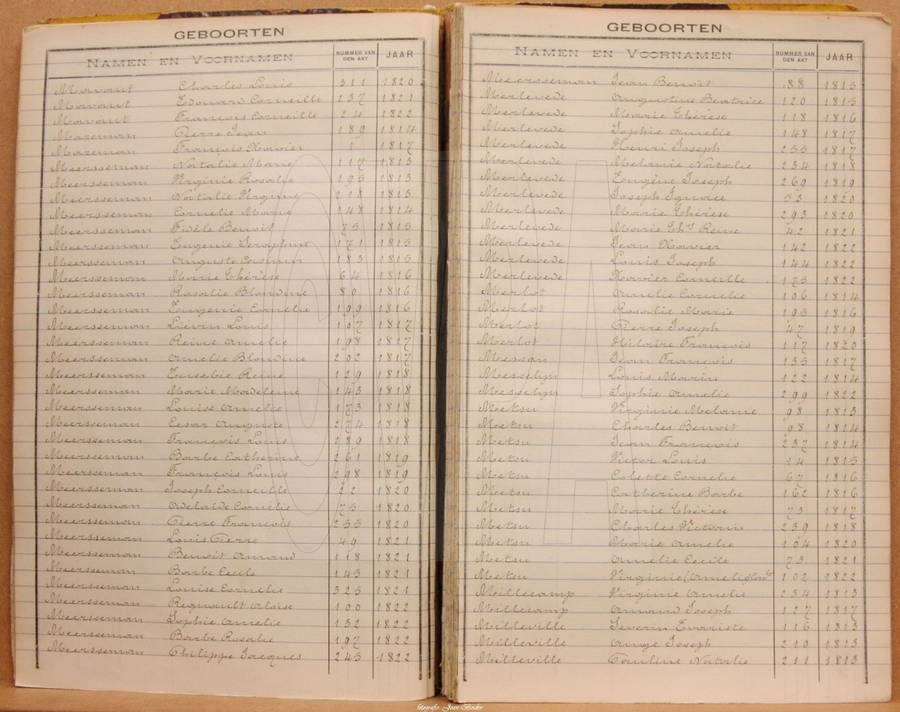 GEBOORTEN
NAMEN EN VOORNAMEN NUMMER VAN DEN AKT JAAR
Mavaut Charles Louis 311 1820
Mavaut Edouard Corneille 237 1821
Mavaut François Corneille 24 1822
Mazeman Pierre Jean 189 1814
Mazeman François Xavier 1 1817
Meersseman Natalie Marie 117 1813
Meersseman Virginie Rosalie 195 1813
Meersseman Natalie Virginie 218 1813
Meersseman Cornelie Marie 148 1814
Meersseman Fidèle Benoit 75 1815
Meersseman Eugenie Seraphine 171 1815
Meersseman Auguste 183 1815
Meersseman Marie Thérèse 64 1816
Meersseman Rosalie Blondine 80 1816
Meersseman Eugenie Cornelie 199 1816
Meersseman Lievin Louis 107 1817
Meersseman Reine Amelie 198 1817
Meersseman Amelie Blondine 202 1817
Meersseman Eusebie Reine 129 1818
Meersseman Marie Madeleine 143 1818
Meersseman Louise Amelie 173 1818
Meersseman Cesar Auguste 274 1818
Meersseman François Louis 289 1818
Meersseman Barbe Catherine 261 1819
Meersseman François Louis 298 1819
Meersseman Joseph Corneille 22 1820
Meersseman Adelaide Cornelie 75 1820
Meersseman Pierre François 255 1820
Meersseman Louis Pierre 49 1821
Meersseman Benoit Amand 118 1821
Meersseman Barbe Cecile 143 1821
Meersseman Louise Cornelie 325 1821
Meersseman Regnault Aloise 100 1822
Meersseman Sophie Amelie 132 1822
Meersseman Barbe Rosalie 197 1822
Meersseman Philippe Jacques 245 1822
GEBOORTEN
NAMEN EN VOORNAMEN NUMMER VAN DEN AKT JAAR
Meersseman Jean Benoit 88 1815
Merlevede Augustine Beatrice 120 1815
Merlevede Marie Thérèse 118 1816
Merlevede Sophie Amelie 148 1817
Merlevede Henri Joseph 255 1817
Merlevede Melanie Natalie 234 1818
Merlevede Eugène Joseph 269 1819
Merlevede Joseph Ignace 53 1820
Merlevede Marie Thérèse 293 1820
Merlevede Marie Reine 42 1821
Merlevede Jean Xavier 142 1822
Merlevede Louis Joseph 144 1822
Merlevede Xavier Corneille 175 1822
Merlot Amelie Cornelie 106 1814
Merlot Rosalie Marie 195 1816
Merlot Pierre Joseph 47 1819
Merlot Hilaire François 117 1820
Jean François 135 1817
Messelyn Louis Marin 122 1814
Messelyn Sophie Amelie 299 1822
Metsu Virginie Melanie 98 1813
Metsu Charles Benoit 98 1814
Metsu Jean François 237 1814
Metsu Victor Louis 1815
Metsu Colette Cornelie 67 1816
Metsu Catherine Barbe 162 1816
Metsu Marie Thérèse 73 1817
Metsu Charles 239 1818
Metsu Marie Amelie 104 1820
Metsu Amelie Cecile 73 1821
Metsu Virginie 102 1822
Meillecamp Virginie Amelie 234 1813
Meillecamp Amand Joseph 127 1817
Milleville Severin Evariste 116 1813
Milleville Ange Joseph 210 1813
Milleville Pauline Natalie 211 1813
fotografie: Joan Boidin